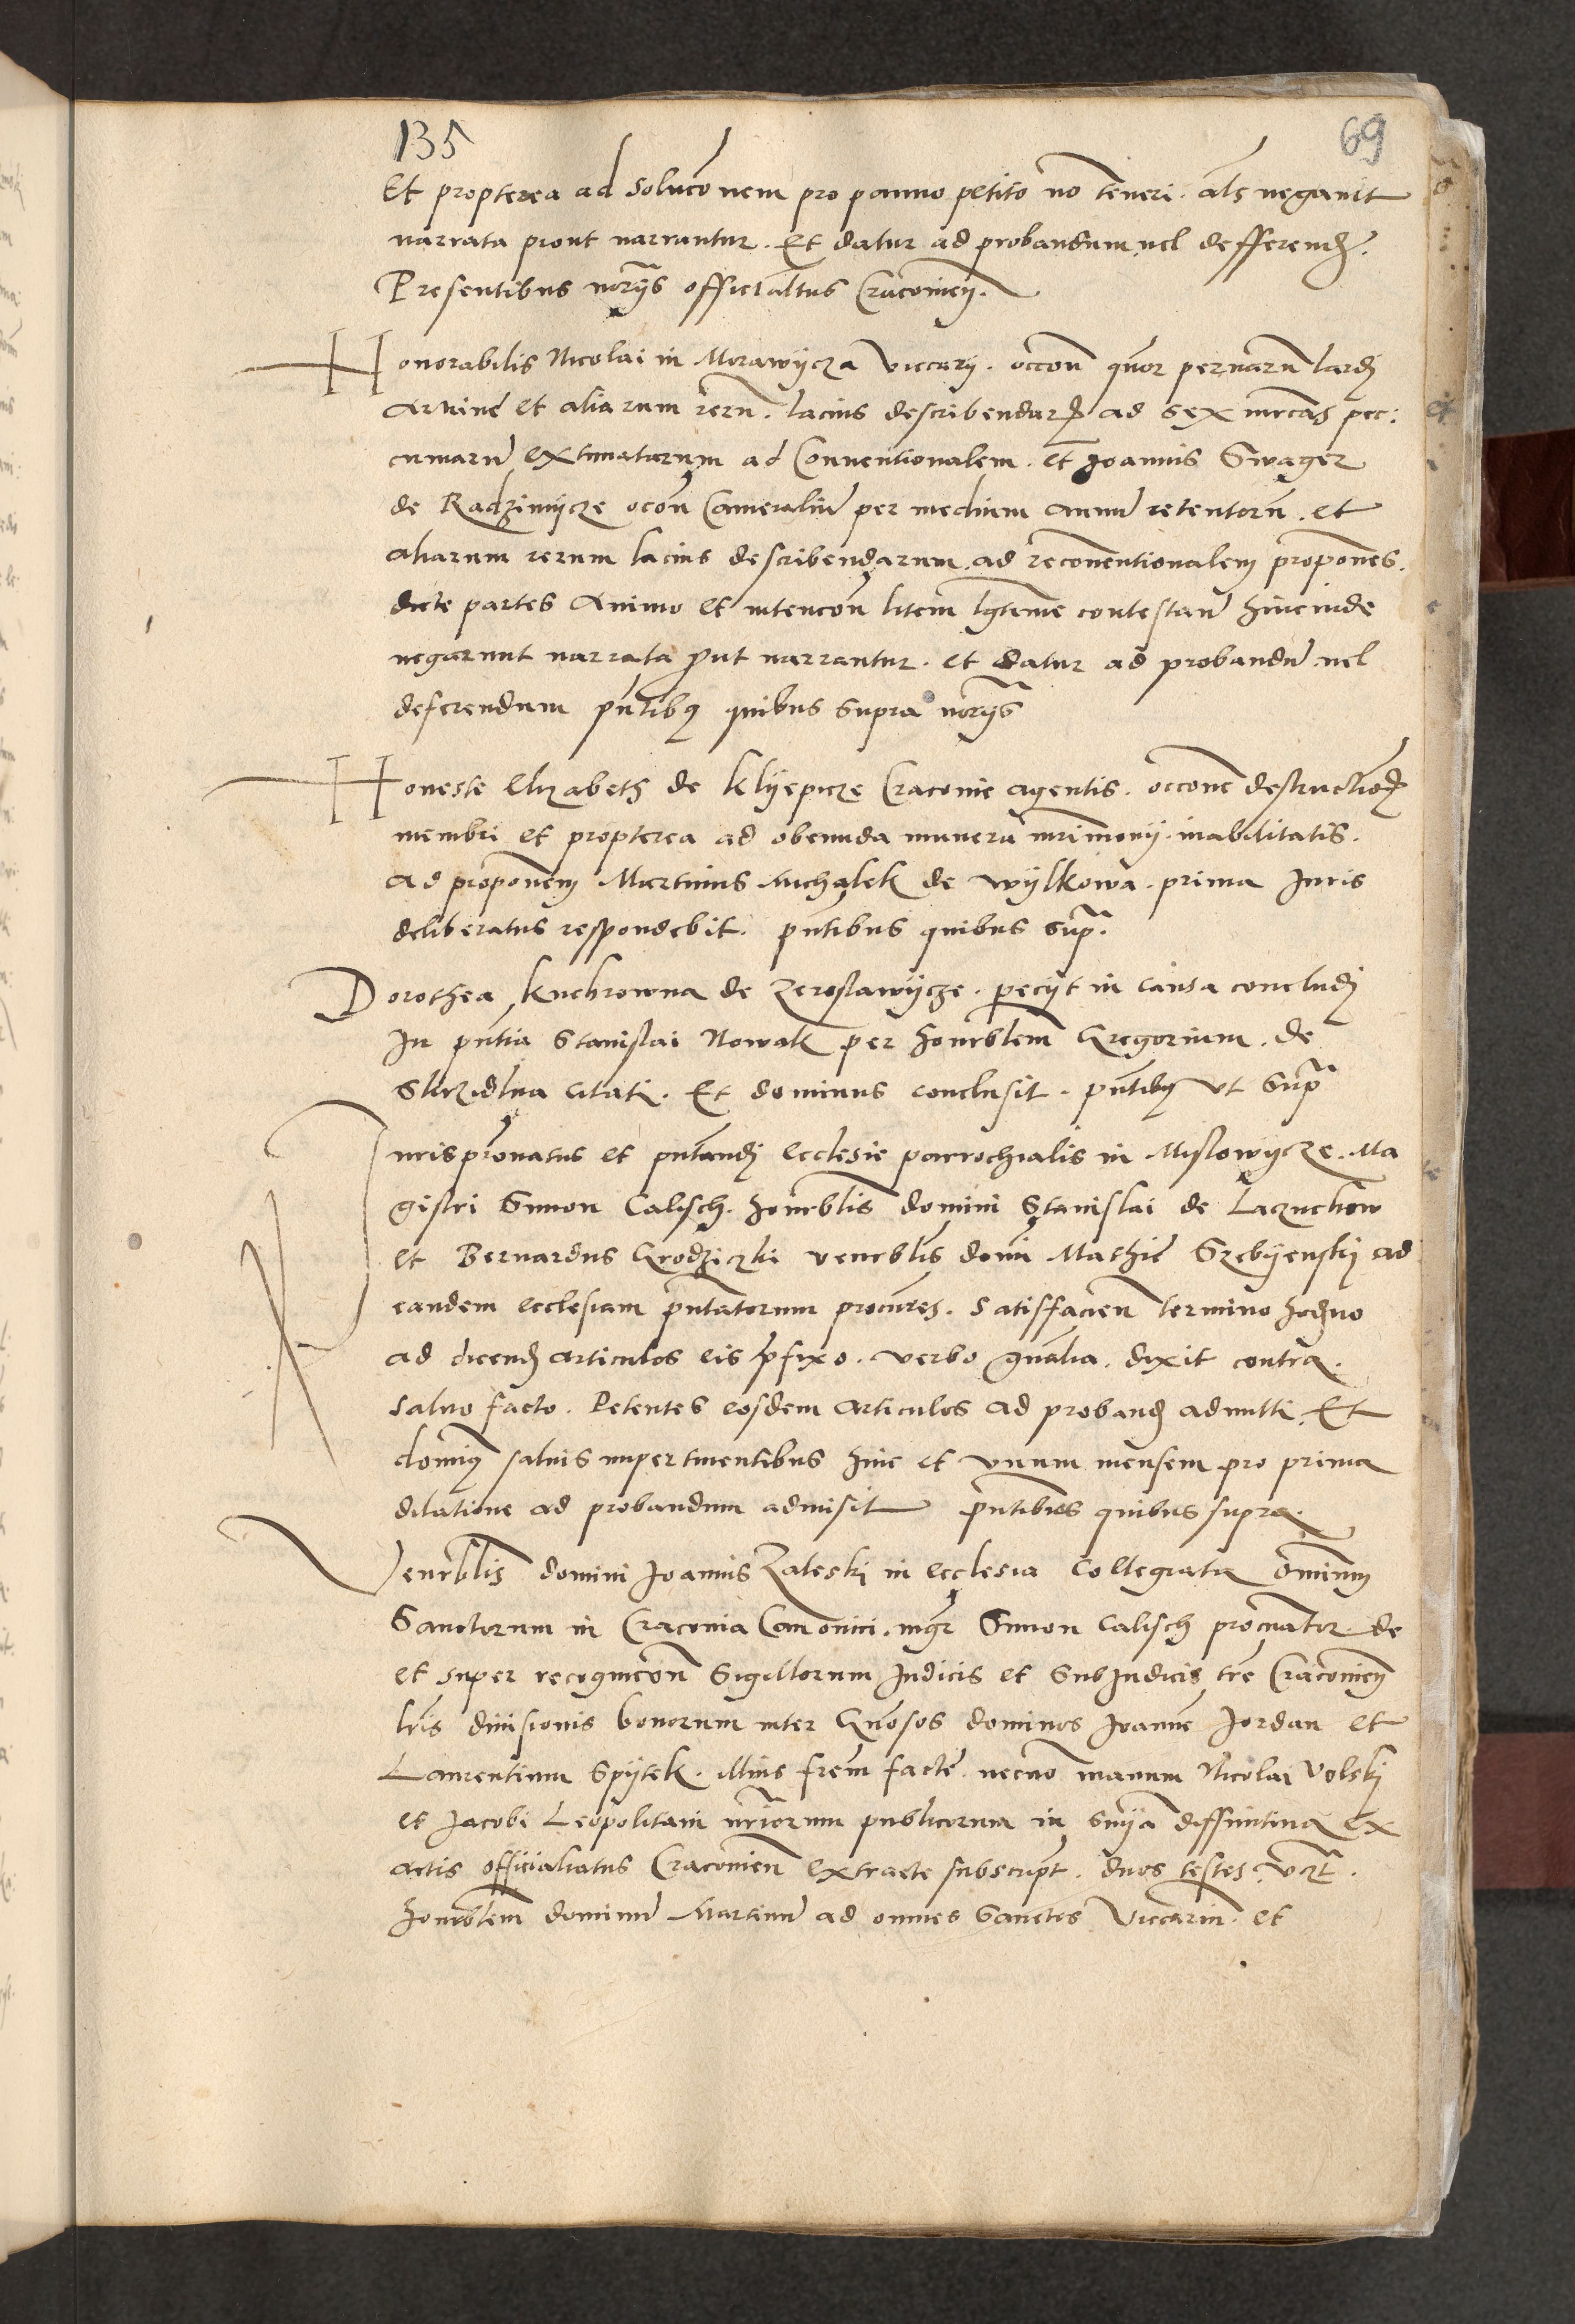 135
69
Et propterea ad soluc̃onem pro panno petito nõ teneri. als negavit
narrata prout narrantur. Et datur ad probandum vel defferend̃.
Presentibus nor̃ijs officialatus Cracovien̄.
Honorabilis Nicolai in Morawycza viccarij. occon̄ qũor pernarũ lardj
arvine et aliarum rerũ. lacius describendarꝝ ad sex mrcas pec:
cuniarũ extimatarum ad Conventionalem. et Joannis Swager
de Radzimycze occon̄ Cameraliũ per medium annũ retentorũ. et
aliarum rerum lacius describendarum. ad reconventionalem proponẽs.
dicte partes animo et intencon̄ litem lgtime contestan̄ hincinde
negarunt narrata prout narrantur. et datur ad probandũ vel
deferendum pñtibꝰ quibus supra nor̃ijs
Honeste Elizabeth de Klyepicze Cracovie agentis. occone destructioꝝ
membri et propterea ad obeunda munera mr̃imonij inabilitatis.
ad proponem̄ Martinus Michalek de Wylkowa. prima Juris
deliberatus respondebit. pñtibus quibus supr̃.
Dorothea Kuchrowna de Zeroslawycze. pecijt in causa concludj
In pñtia Stanislai Nowak per honrblem Gregorium. de
Skrzidlna citati. Et dominus conclusit. pñtibꝰ ut supr̃
Jurispr̃onatus et pñtandj ecclesie parrochialis in Mislowycze. Ma
gistri Simon Calisch. honrblis domini Stanislai de Laznchow
et Bernardus Grodziczki venrblis domĩ Mathie Szebyenski ad
eandem ecclesiam pñtatorum procur̃es. Satisfacien̄ termino hodr̃no
ad dicend̃ articulos eis pr̃fixo. verbo gñalia. dixit contra.
salvo facto. Petentes eosdem articulos ad proband̃ admitti. Et
domiꝰ salvis impertinentibus hinc et unum mensem pro prima
dilatione ad probandum admisit pr̃ntibus quibus supra.
Venrblis domini Joannis Zaleski in ecclesia Collegiata om̃nium
Sanctorum in Cracovia Canonici. mgr̃ Simon Calisch procuator de
et super recognicon̄ Sigillorum Judicis et Subjudicis tr̃e Cracovien̄
lr̃is divisionis bonorum inter Gñosos dominos Joannẽ Jordan et
Laurentium Spytek. illius fr̃em facte. necnõ manum Nicolai Volski
et Jacobi Leopolitani nr̃iorum publicorum in snĩja diffinitiva ex
actis officialatus Cracovien̄ extracte subscript. duos testes. vcꝫt.
honrblem dominũ Martinũ ad omnes Sanctos Viccariũ. et